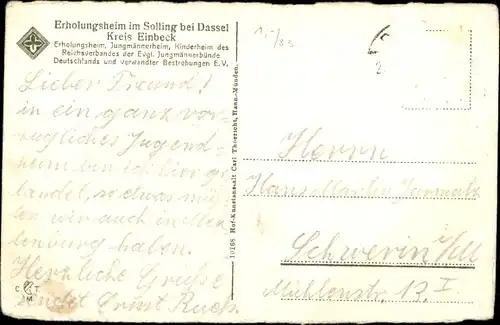 Erholungsheim im Solling bei Dassel
Kreis Einbeck
Erholungsheim, Jungmännerheim, Kinderheim des
Reichsverbandes der Evgl. Jungmännerbünde
Deutschlands und verwandter Bestrebungen E.V.
Lieber Freund!
in ein ganz vor-
zügliches Jugend-
heim bin ich hier ge
landet, so etwas müß
ten wir auch in Meck
lenburg haben.
Herzliche Grüße
sendet Ernst
C. T.
M
10168 Hof-Kunstanstalt Carl Thoericht, Hann.-Münden.
Herrn
Hans Martin
Schwerin i/M
Mühlenstr. 17 I